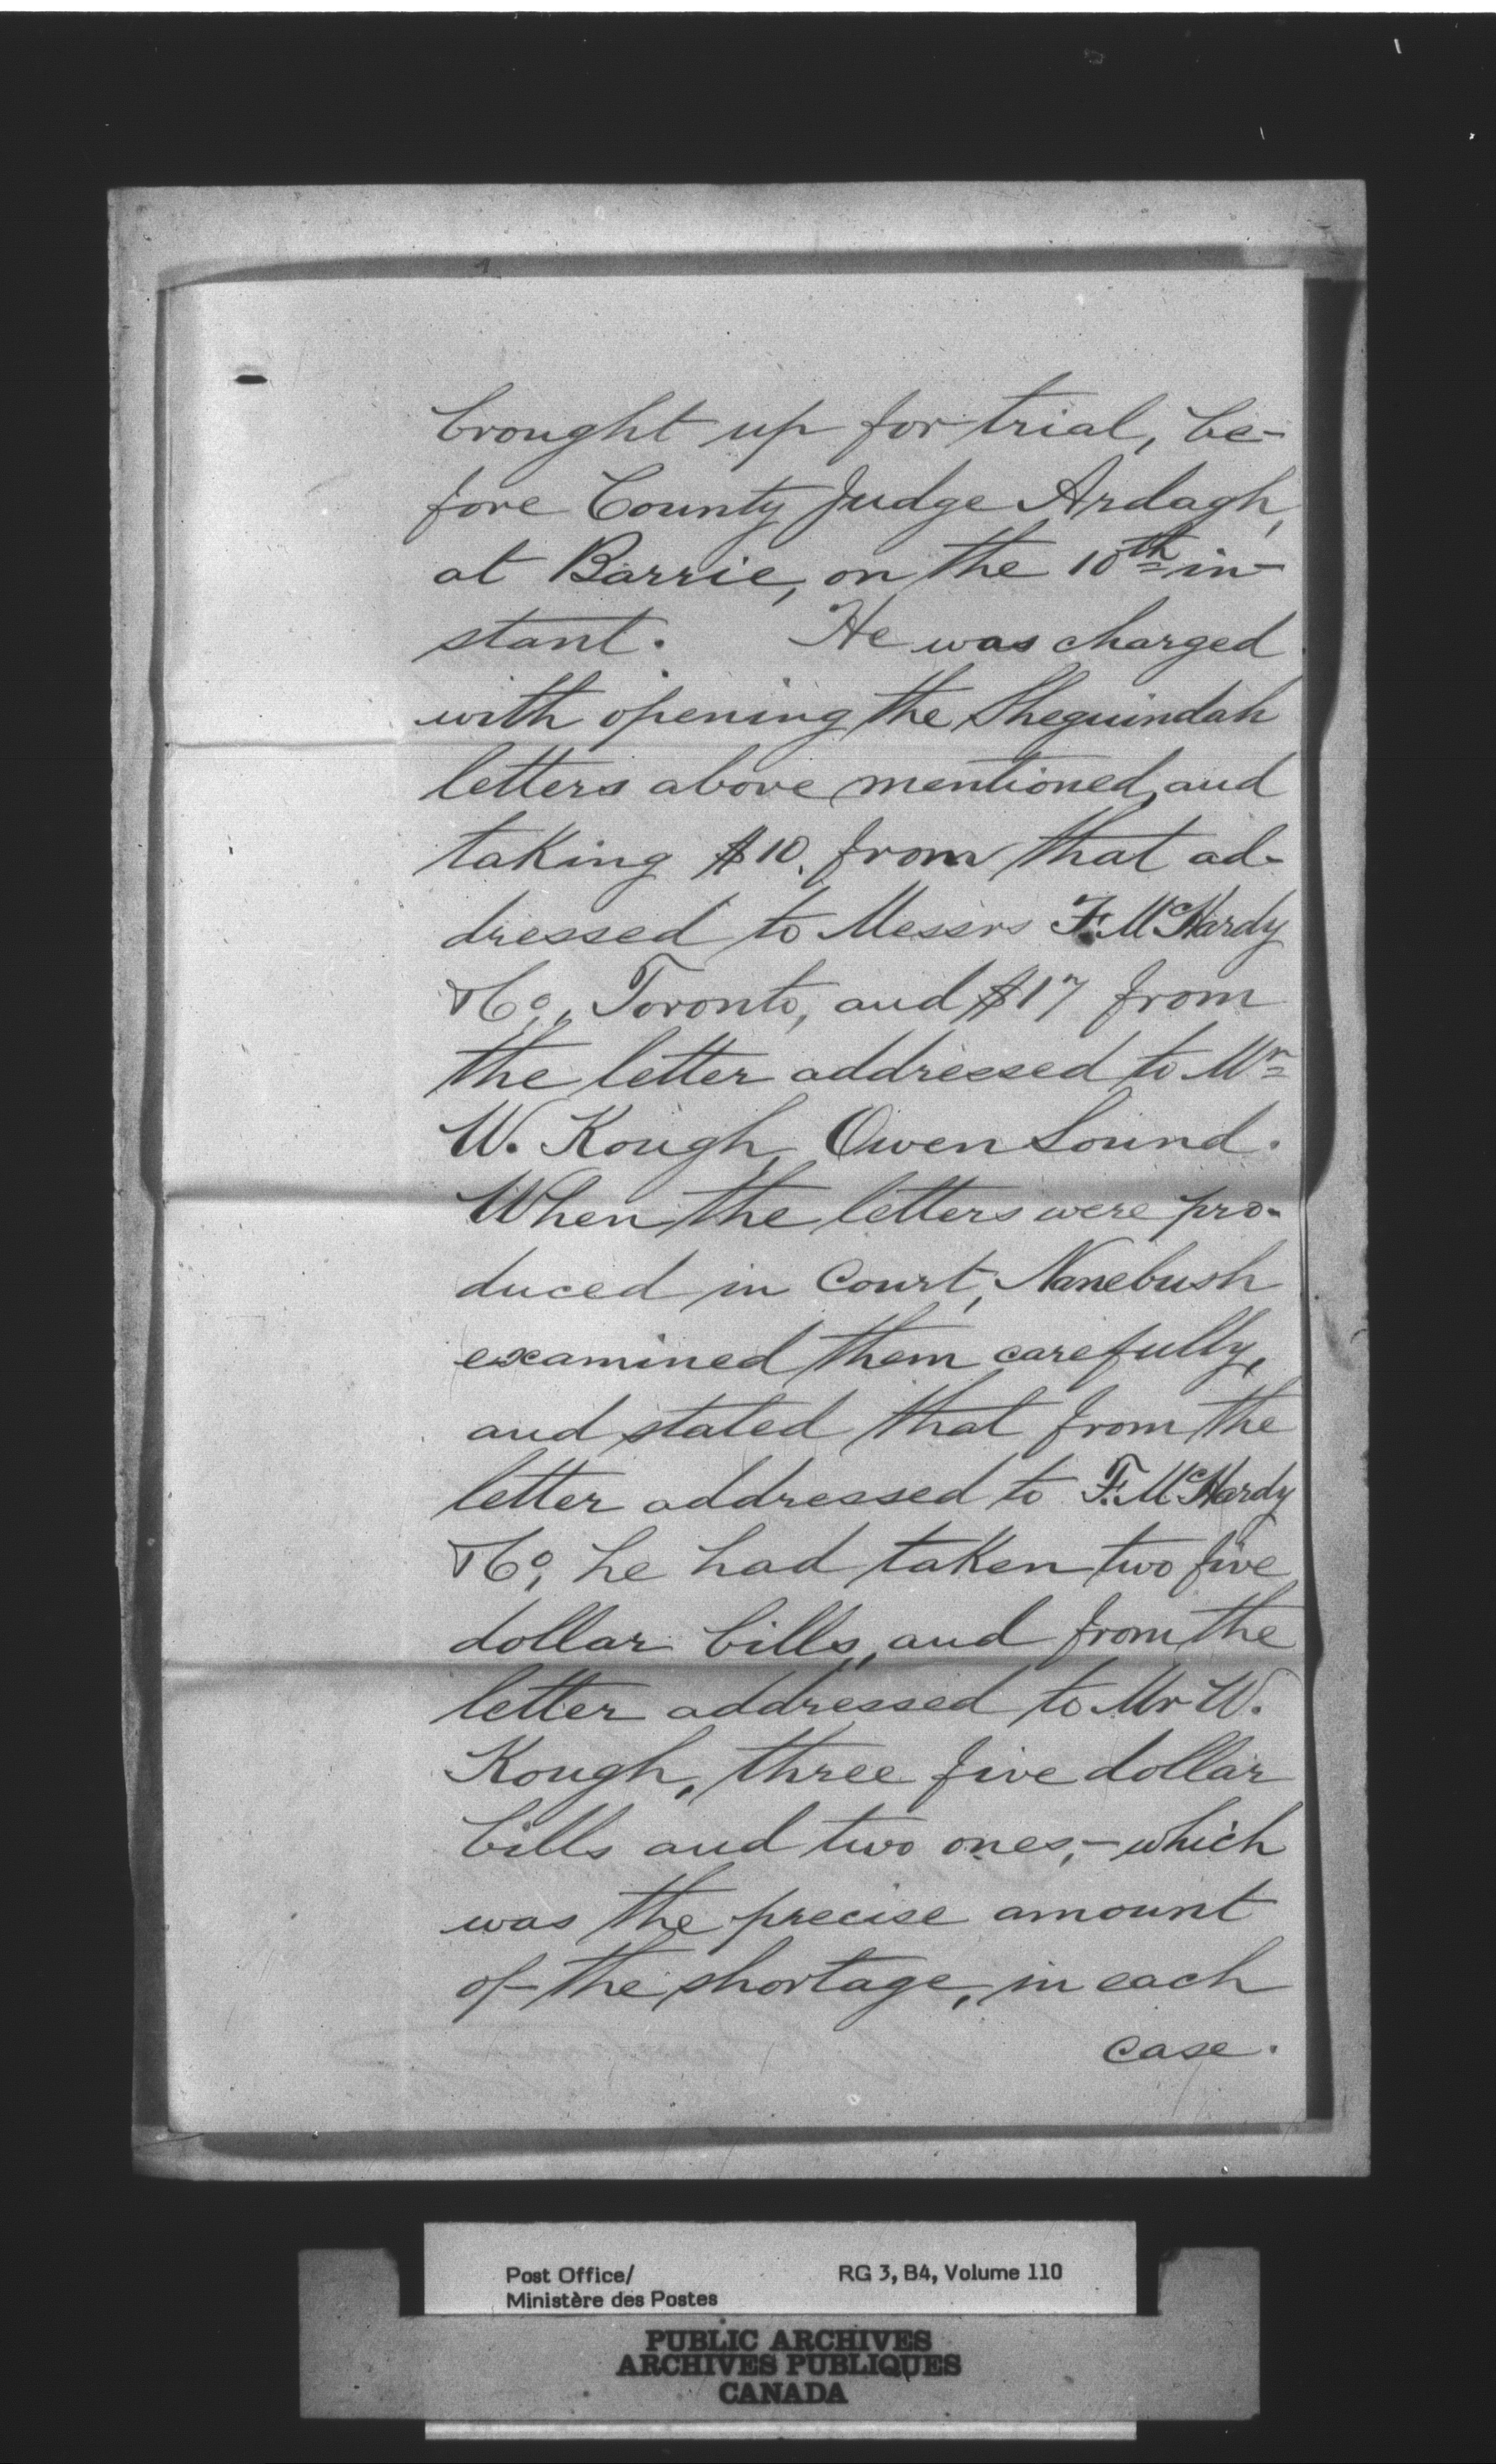 brought up for trial, be-
fore County Judge Ardagh,
at Barrie, on the 10th in-
stant. He was charged
with opening the Sheguindah
letters above mentioned, and
taking $10. from that ad-
dressed to Messrs F. McHardy
& Co., Toronto, and $17 from
the letter addressed to Mr
W. Kough, Owen Sound.
When the letters were pro-
duced in Court, Nanebush
examined them carefully,
and stated that from the
letter addressed to F. McHardy
& Co, he had taken two five
dollar bills, and from the
letter addressed to Mr W.
Kough, three five dollar
bills and two ones,- which
was the precise amount
of the shortage, in each
case.
Post Office/ RG 3, B4, Volume 110
Ministère des Postes
PUBLIC ARCHIVES
ARCHIVES PUBLIQUES
CANADA